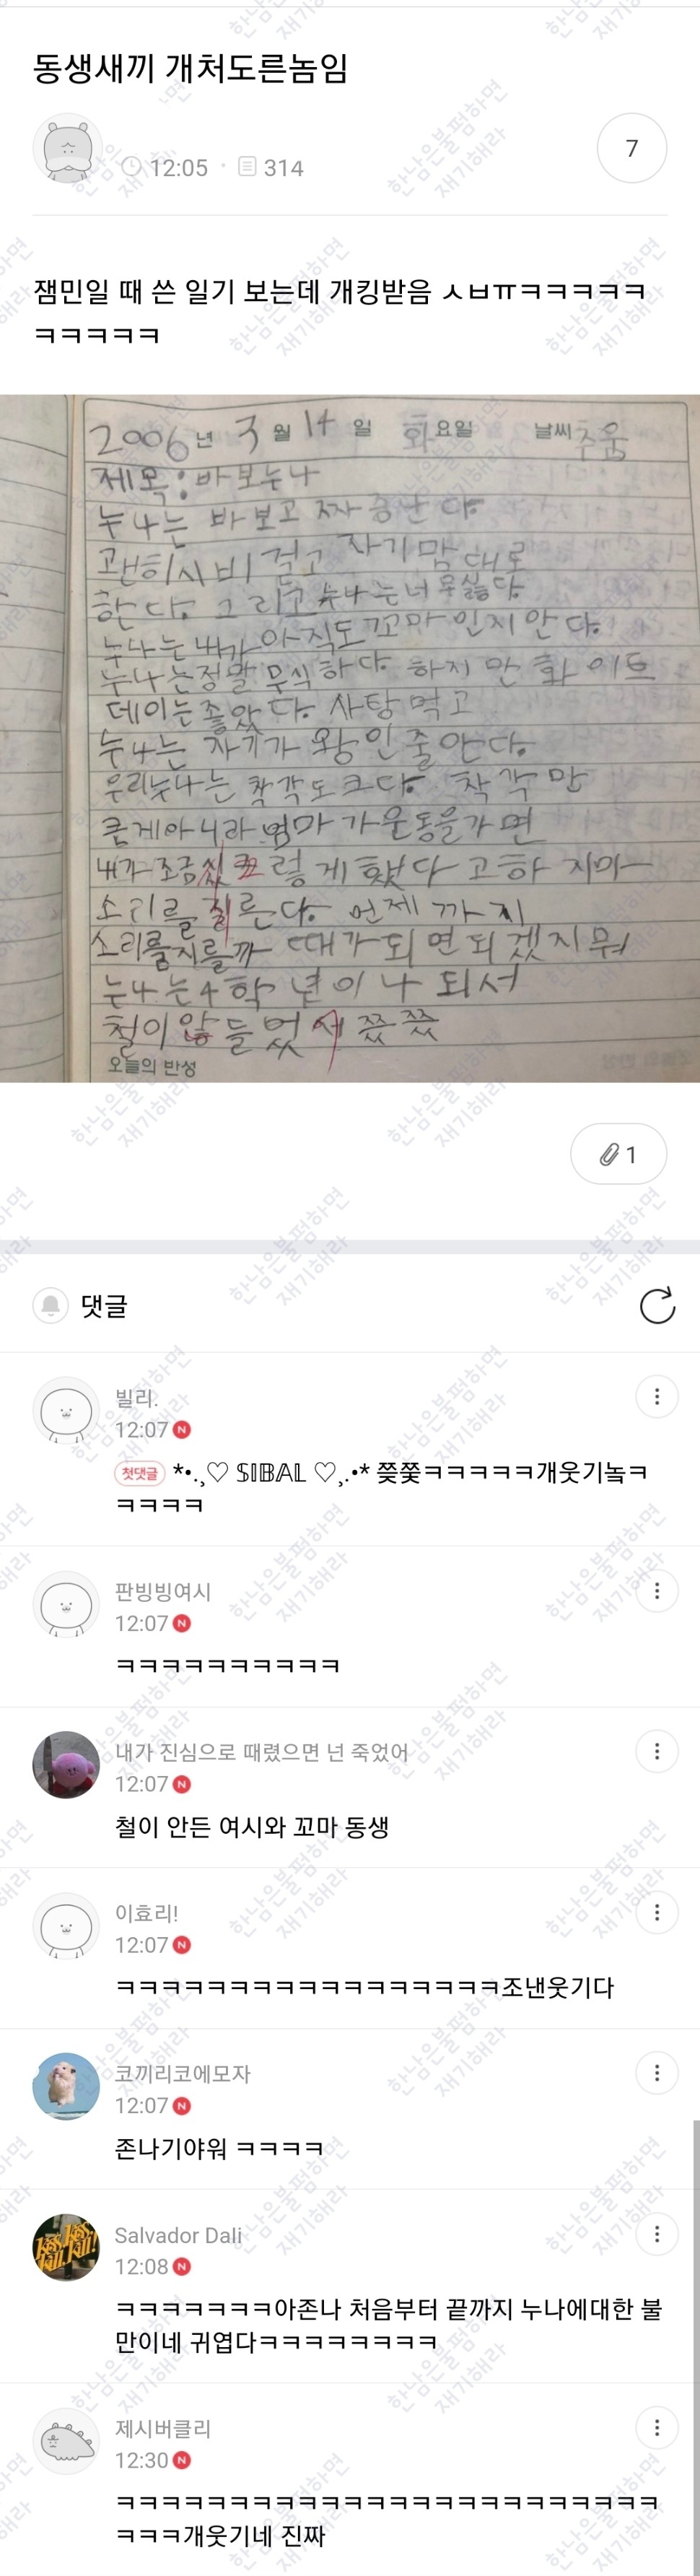 동생새끼 개처도른놈임
12:05 · 314
7
잼민일 때 쓴 일기 보는데 개킹받음 ㅅㅂㅠㅋㅋㅋㅋㅋ
ㅋㅋㅋㅋㅋ
2006년 3월 14일 화요일 날씨 추움
제목:바보누나
누나는 바보고 짜증난다.
괜히시비 걸고 자기맘대로
한다. 그리고 누나는너무싫다.
누나는 내가 아직도 꼬마인지 안다.
누나는정말 무식하다. 하지만 화이트
데이는좋았다. 사탕먹고
누나는 자기가 왕인줄안다.
우리누나는 착각도크다. 착각만
큰게아니라 엄마가운동을가면
내가 조금 렇게했다고하지마
소리를 른다. 언제까지
소리를지를까 때가되면되겠지뭐
누나는4학년이나 되서
철이 들었 쯨쯨
오늘의 반성
1
댓글
빌리.
12:07 N
첫댓글 *•.¸♡ 𝕊𝕀𝔹𝔸𝕃 ♡¸.•* 쯪쯫ㅋㅋㅋㅋㅋ개웃기놐ㅋ
ㅋㅋㅋㅋ
판빙빙여시
12:07 N
ㅋㅋㅋㅋㅋㅋㅋㅋㅋㅋ
내가 진심으로 때렸으면 넌 죽었어
12:07 N
철이 안든 여시와 꼬마 동생
이효리!
12:07 N
ㅋㅋㅋㅋㅋㅋㅋㅋㅋㅋㅋㅋㅋㅋㅋㅋㅋ조낸웃기다
코끼리코에모자
12:07 N
존나기야워 ㅋㅋㅋㅋ
Salvador Dali
12:08 N
ㅋㅋㅋㅋㅋㅋㅋ아존나 처음부터 끝까지 누나에대한 불
만이네 귀엽다ㅋㅋㅋㅋㅋㅋㅋㅋ
제시버클리
12:30 N
ㅋㅋㅋㅋㅋㅋㅋㅋㅋㅋㅋㅋㅋㅋㅋㅋㅋㅋㅋㅋㅋㅋㅋㅋ
ㅋㅋㅋ개웃기네 진짜
한남은불펌하면
재기해라